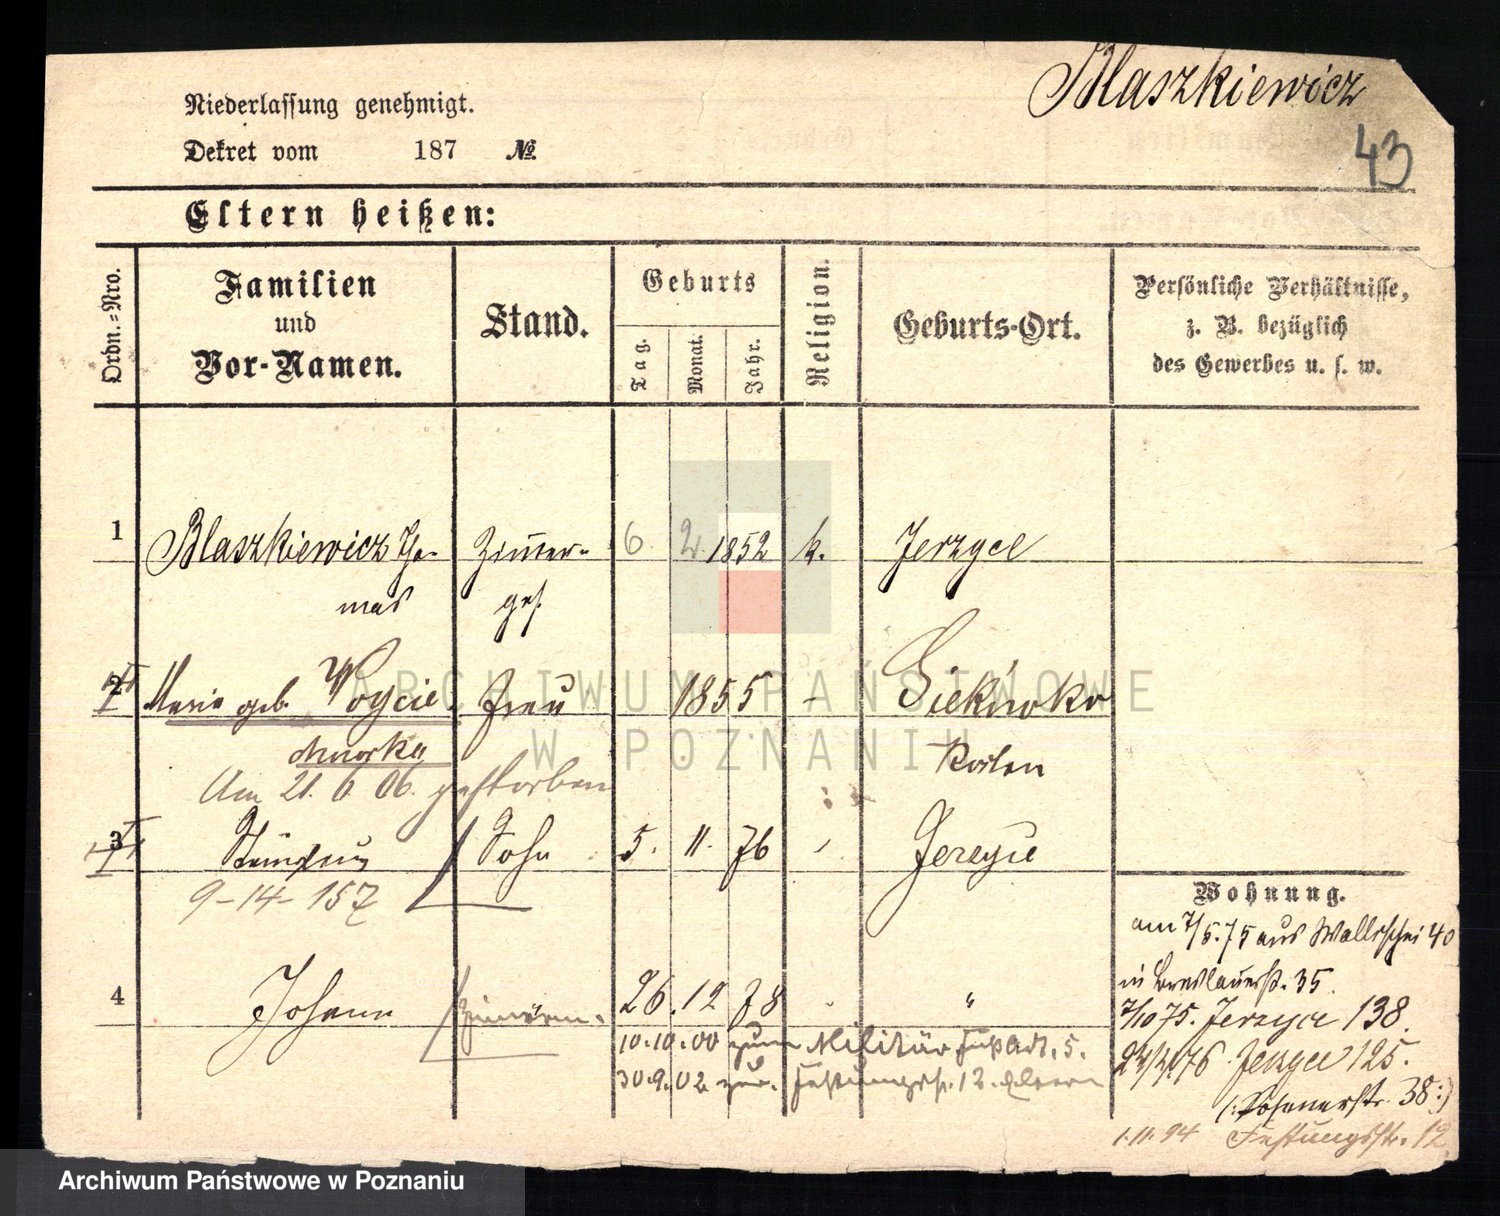 Blaszkiewicz
43
Niederlassung genehmigt.
Dekret vom 187 №
Eltern heißen:
Ordn.-Nro.
Familien und Vor-Namen.
Stand.
Geburts
Tag.
Monat.
Jahr.
Religion.
Geburts-Ort.
Persönliche Verhältnisse,
z. B. bezüglich
des Gewerbes u. s. w.
1 Blaszkiewicz Tho- Zimer- 6 2. 1852 k. Jerzyce
mas ges.
2 Marie geb. Woycie Frau 1855 Siekówko
chowska Kosten
Am 21. 6 06. gestorben
3 Sohn 5. 11. 76 Jerzyce
9-14-157
4 Johann 26. 12 78 "
10.10.00 zum Militär Fußart. 5.
30.9.02 zur. Festungsstr. 12. Eltern
Wohnung.
am 7/5.75 aus Wallischei 40
in Breslauerst. 35.
7/10 75. Jerzyce 138.
Jerzyce 125.
(: Posenerstr. 38:)
1.11.94 Festungsstr. 12
ARCHIWUM PAŃSTWOWE
W POZNANIU
Archiwum Państwowe w Poznaniu